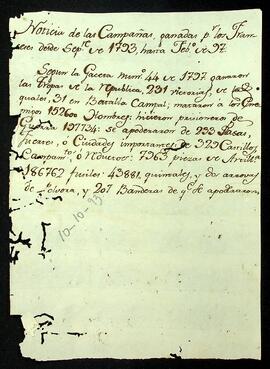 Noticia de las Campañas, ganadas pr. los Fran
ceses desde Sepre. de 1793, hasta Febo. de 97
Segun la Gaceta num. 44 de 1797 ganaron
las tropas de la Republica, 231 victorias de
quales, 31 en Batalla Campal; mataron a los Ene
migos 152600 Hombres; hicieron prisioneros de
Guerra 197734: se apoderaron de 299 Plazas,
fuertes, ó Ciudades importantes: de 325 Castillos,
Campamtos. ó Reductos: 7963 piezas de Artilla.
186762 fusiles: 43881, quintales, y dos arrovas
de Polvora, y 207 Banderas de qe. se apoderaron
10-10-95